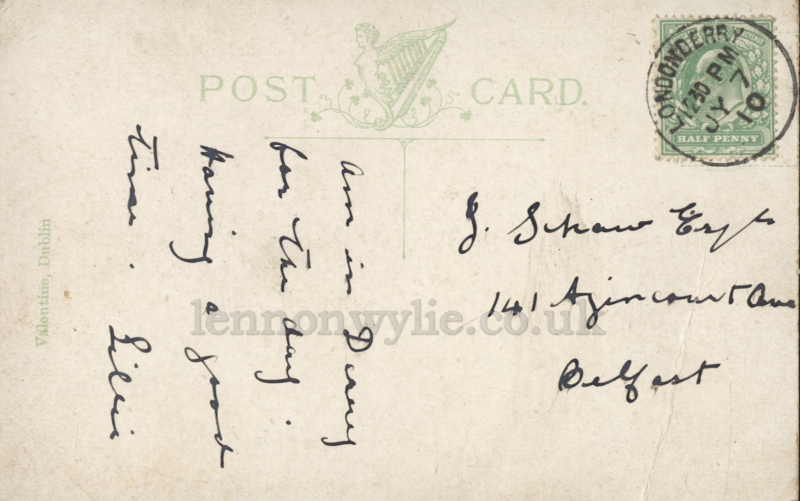 POST CARD.
LONDONDERRY
12.30 PM
JY 7
10
HALF PENNY
Am in Derry
for the day.
Having a good
time.
Lillie
J. Shaw Esq
141 Agincourt Ave
Belfast
Valentine, Dublin
lennonwylie.co.uk